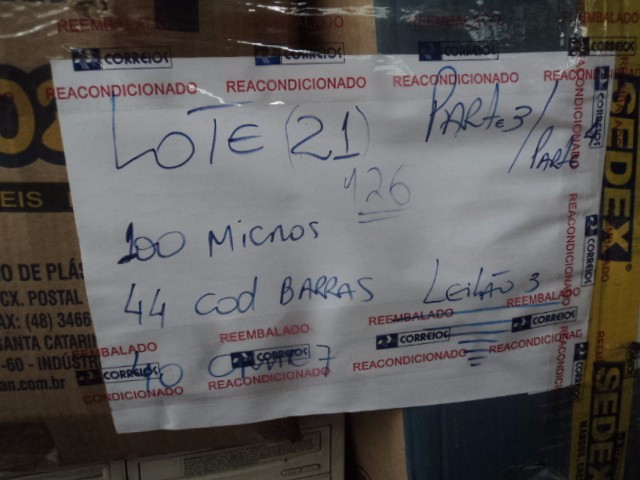 REEMBALADO
CORREIOS CORREIOS
REACONDICIONADO REACONDICIONADO REACONDICIONADO
LOTE (21) PARTE 3/
PART
126
100 MICROS
44 COD BARRAS LEILÃO 3
REEMBALADO
REEMBALADO
CORREIOS
REACONDICIONADO
REEMBALADO
40
CORREIOS
CORREIOS
CONDICIONADO
REACONDICIONADO
02
EIS
O DE PLÁS
CX. POSTAL
AX: (48) 3466
SANTA CATARIN
-60 - INDÚSTR
an.com.br
CORREIOS
REACONDICIONADO
CORREIOS
REACONDICIONADO
CORREIOS
SEDEX
SEDEX